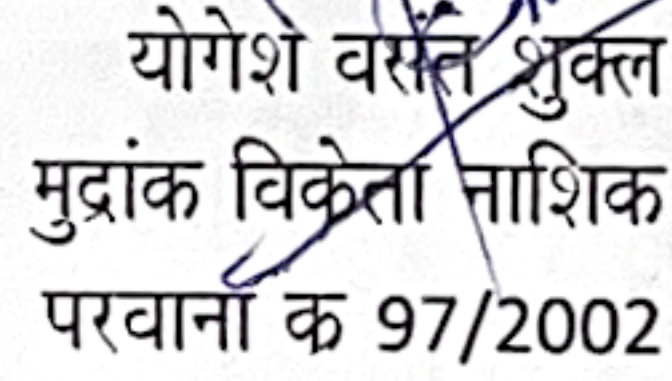 योगेश वसंत शुक्ल
मुद्रांक विक्रेता नाशिक
परवाना क्र 97/2002